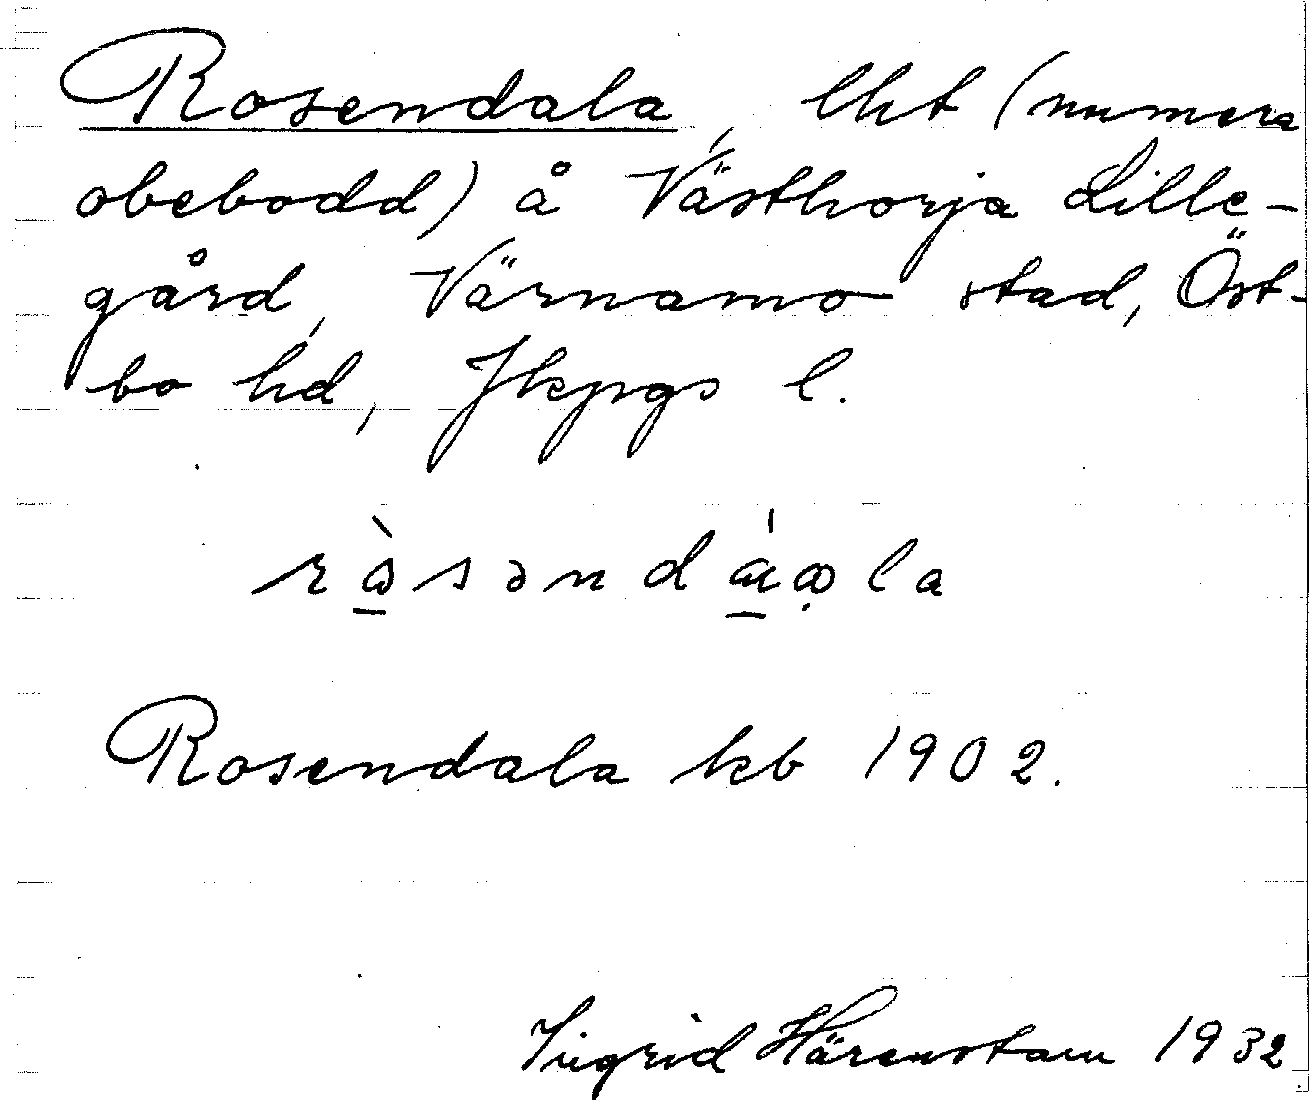 Rosendala, lht (numera
obebodd) å Västhorja Lille-
gård, Värnamo stad, Öst-
bo hd, Jkpgs l.
Rosendala kb 1902.
Ingrid Härenstam 1932